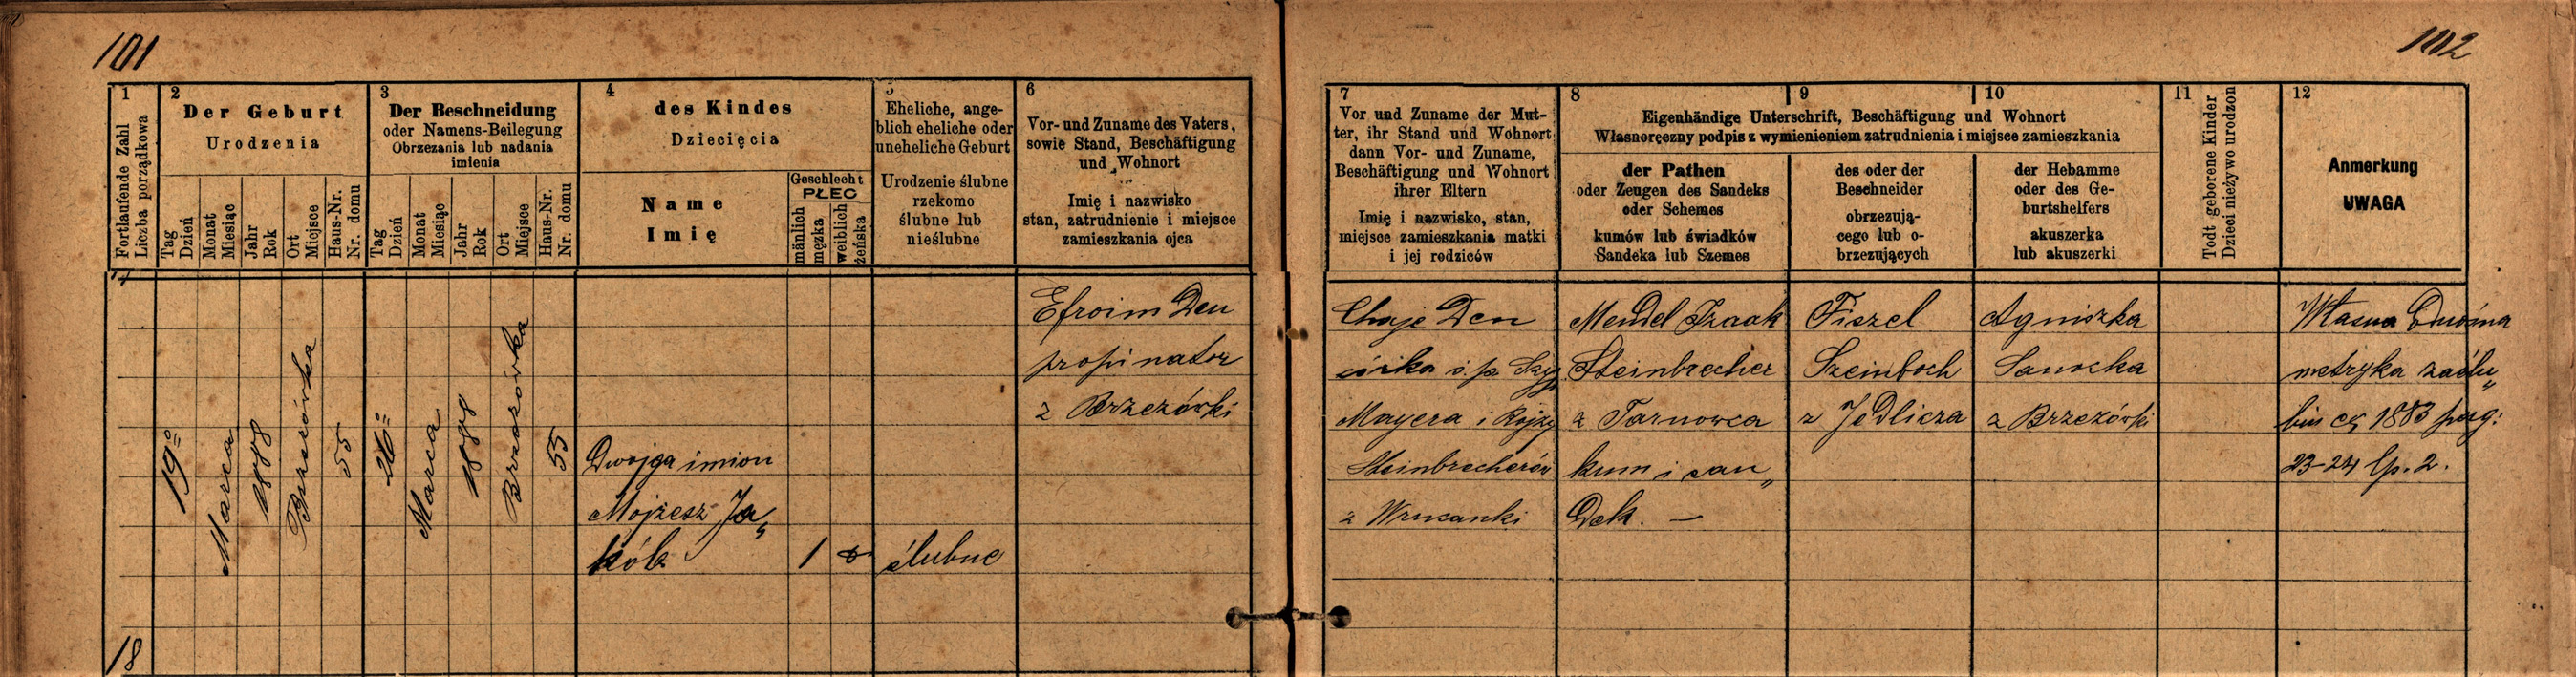 101
102
1
Fortlaufende Zahl
Liczba porządkowa
2
Der Geburt
Urodzenia
Tag
Dzień
Monat
Miesiąc
Jahr
Rok
Ort
Miejsce
Haus-Nr.
Nr. domu
3
Der Beschneidung
oder Namens-Beilegung
Obrzezania lub nadania
imienia
Tag
Dzień
Monat
Miesiąc
Jahr
Rok
Ort
Miejsce
Haus-Nr.
Nr. domu
4
des Kindes
Dziecięcia
Name
Imię
Geschlecht
PŁEC
mänlich
męzka
weiblich
żeńska
5
Eheliche, ange-
blich eheliche oder
uneheliche Geburt
Urodzenie ślubne
rzekomo
ślubne lub
nieślubne
6
Vor- und Zuname des Vaters,
sowie Stand, Beschäftigung
und Wohnort
Imię i nazwisko
stan, zatrudnienie i miejsce
zamieszkania ojca
7
Vor und Zuname der Mut-
ter, ihr Stand und Wohnort
dann Vor- und Zuname,
Beschäftigung und Wohnort
ihrer Eltern
Imię i nazwisko, stan,
miejsce zamieszkania matki
i jej rodziców
8
9
10
Eigenhändige Unterschrift, Beschäftigung und Wohnort
Własnoręczny podpis z wymienieniem zatrudnienia i miejsce zamieszkania
der Pathen
oder Zeugen des Sandeks
oder Schemes
kumów lub świadków
Sandeka lub Szemes
des oder der
Beschneider
obrzezują-
cego lub o-
brzezujących
der Hebamme
oder des Ge-
burtshelfers
akuszerka
lub akuszerki
11
Todt geborene Kinder
Dzieci nieżywo urodzon
12
Anmerkung
UWAGA
17
19º
Marca
1888
Brzezówka
55
26º
Marca
1888
Brzezówka
55
Dwojga imion
Mojżesz Ja„
kób
1
ślubne
Efroim Den
propinator
z Brzezówki
Chaje Den
córka ś. p.
Mayera i Rojzy
Steinbrecherów
z Wrocanki
Mendel Izaak
Steinbrecher
z Tarnowca
kum i san„
dek. —
Fiszel
Szeinboch
z Jedlicza
Agniszka
Sanocka
z Brzezówki
Własna
metryka zaślu„
bin 1883 pag:
23-24 lp. 2.
18